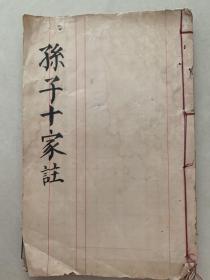 孫子十家註